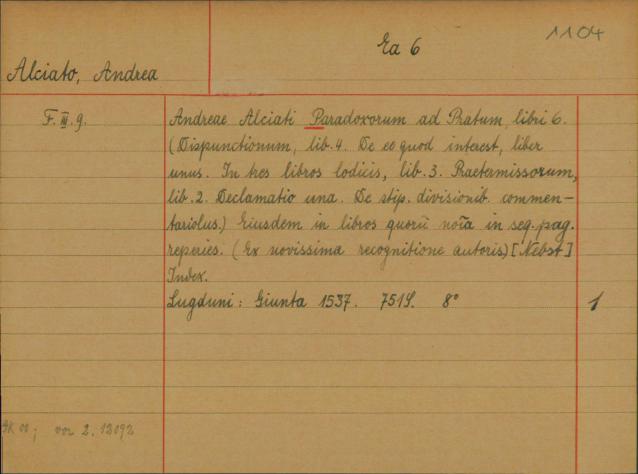 1104
Ea 6
Alciato, Andrea
F. III. 9.
Andreae Alciati Paradoxorum ad Pratum, libri 6.
(Dispunctionum, lib. 4. De eo quod interest, liber
unus. In tres libros Codicis, lib. 3. Praetermissorum,
lib. 2. Declamatio una. De stip. divisionib. commen-
tariolus.) Eiusdem in libros quorū noīa in seq. pag.
reperies. (Ex novissima recognitione autoris) [Nebst]
Index.
Lugduni: Giunta 1537. 751 S. 8°
1
GK 00; vor 2. 12092